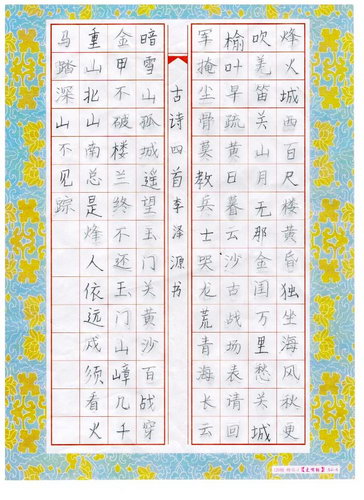 烽火城西百尺楼黄昏独坐海风秋更
吹羌笛关山月无那金闺万里愁关城
榆叶早疏黄日暮云沙古战场表请回
军掩尘骨莫教兵士哭龙荒青海长云
古诗四首李泽源书
暗雪山孤城遥望玉门关黄沙百战穿
金甲不破楼兰终不还玉门山嶂几千
重山北山南总是烽人依远戍须看火
马踏深山不见踪